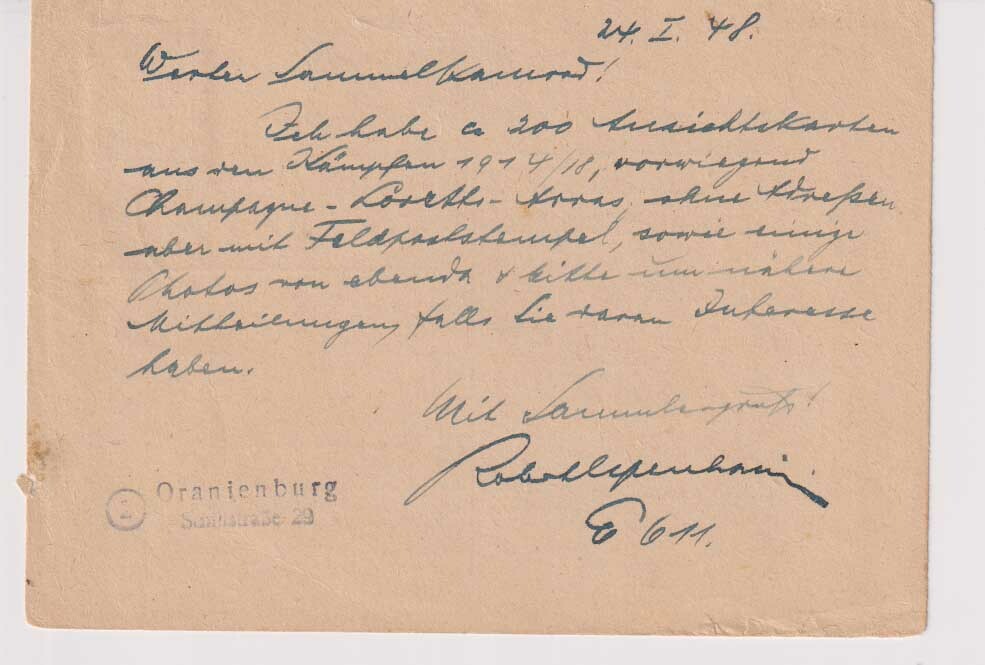 24. I. 48.
Werter Sammelkamerad!
Ich habe ca 200 Ansichtskarten
aus den Kämpfen 1914/18, vorwiegend
Champagne - Loretto - Arras, ohne Adreßen
aber mit Feldpoststempel, sowie einige
Photos von ebenda & bitte um nähere
Mitteilungen, falls Sie daran Interesse
haben.
Mit Sammlergruß!
Robert
E 611.
2 Oranienburg
straße 29